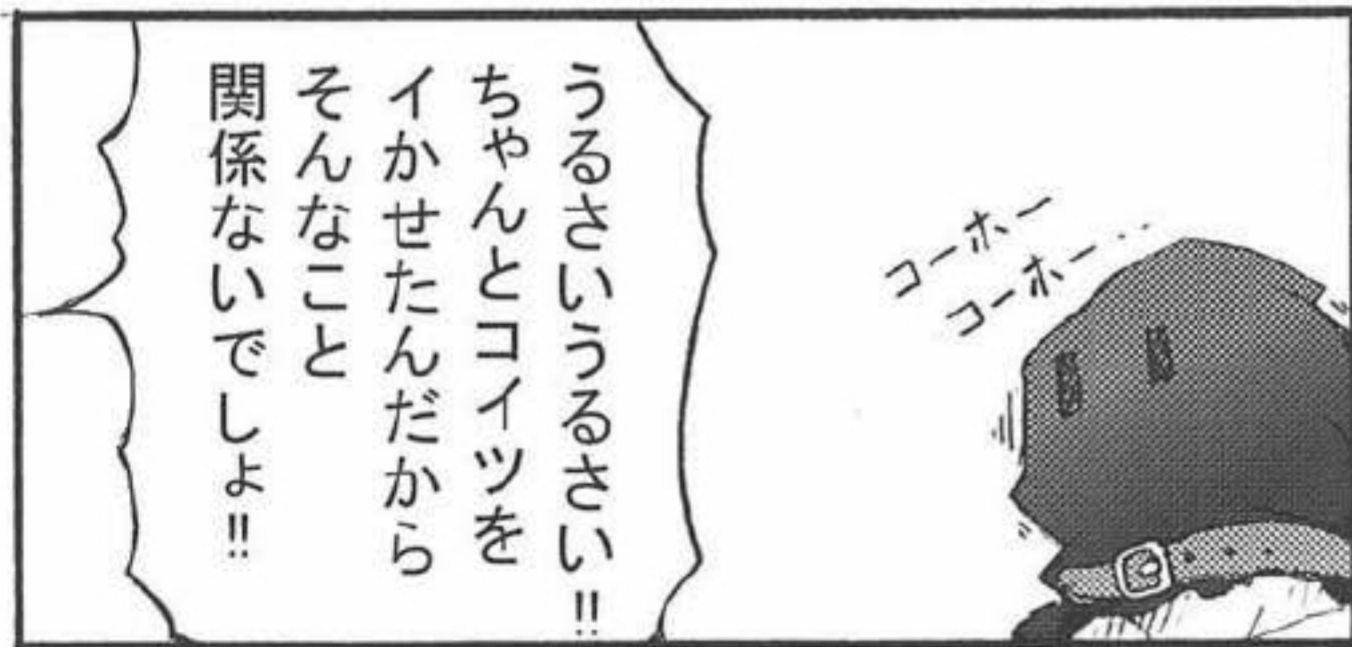 コーホー
コーホー‥
うるさいうるさい!!
ちゃんとコイツを
イかせたんだから
そんなこと
関係ないでしょ!!